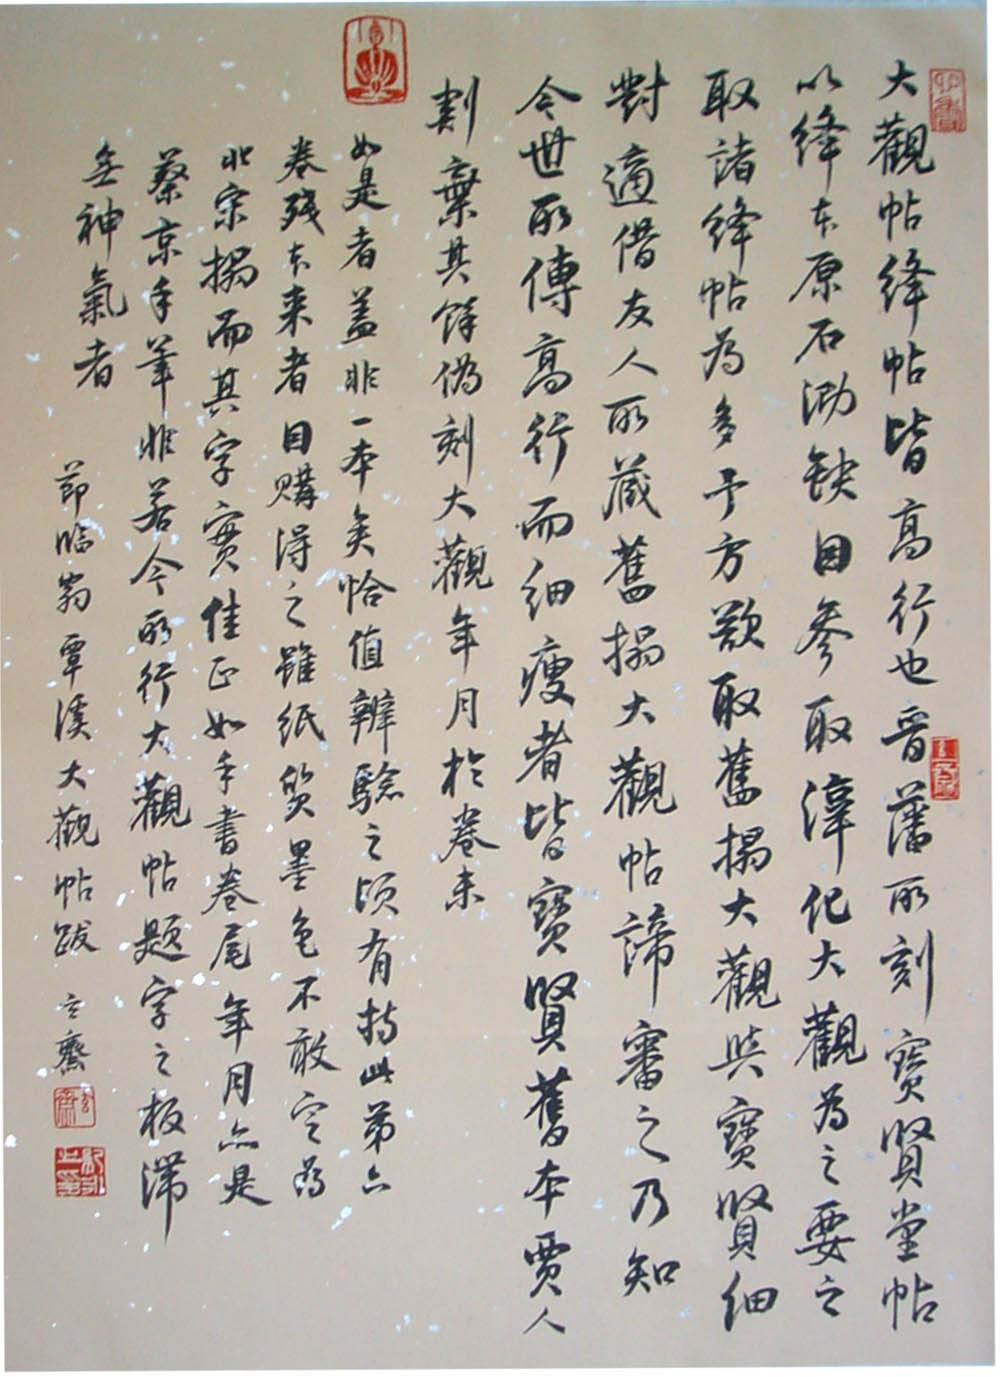 大觀帖絳帖皆高行也晉藩所刻寶賢堂帖
以絳本原石泐缺因參取淳化大觀為之要之
取諸絳帖為多予方欲取舊搨大觀與寶賢細
對適借友人所藏舊搨大觀帖諦審之乃知
今世所傳高行而細瘦者皆寶賢舊本賈人
割棄其餘偽刻大觀年月於卷末
如是者蓋非一本矣恰值辨驗之頃有持此第六
卷殘本來者因購得之雖紙質墨色不敢定為
北宋搨而其字實佳正如手書卷尾年月亦是
蔡京手筆非若今所行大觀帖題字之板滯
無神氣者
節臨翁覃溪大觀帖跋 玄齋